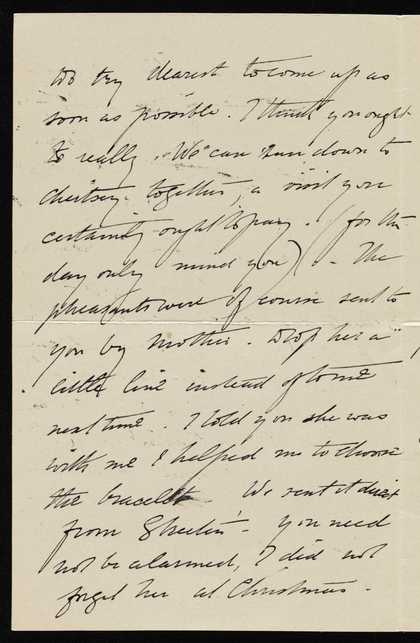 Do try dearest to come up as
soon as possible. I think you ought
to really. We can run down to
Chertsey together, a visit you
certainly ought to pay. (for the
day only mind you). - The
pheasants were of course sent to
you by mother. Drop her a
little line instead of to me
next time. I told you she was
with me & helped me to choose
the bracelet - We sent it direct
from - you need
not be alarmed, I did not
forget her at Christmas.